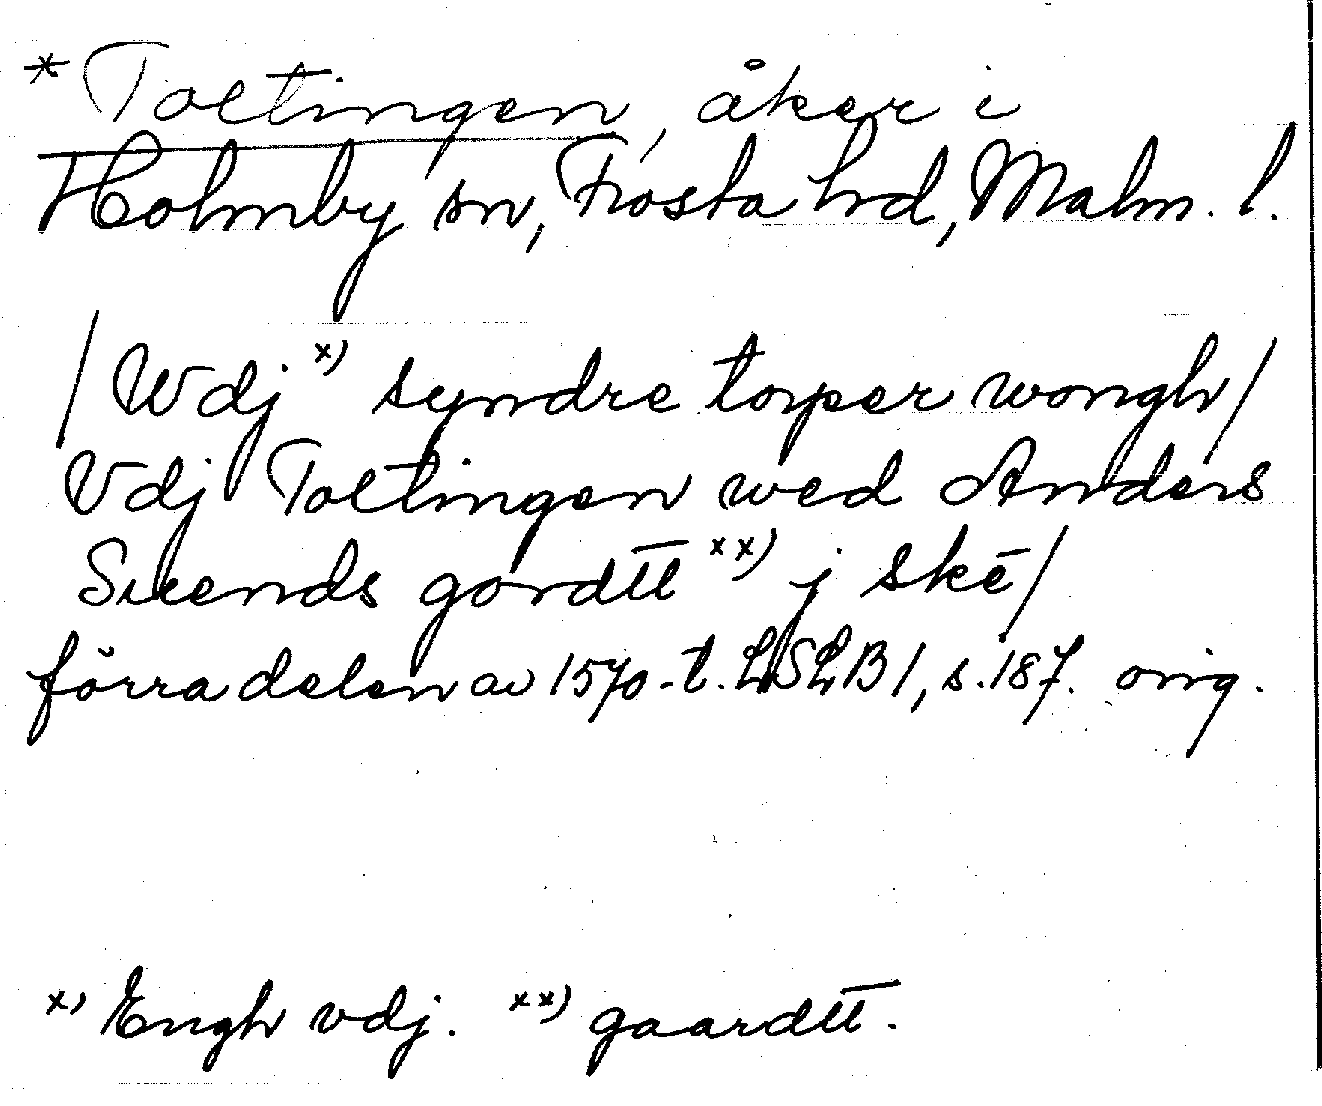 * Toltingen, åker i
Holmby sn, Frosta hrd, Malm. l.
/ Wdj x) syndre torper wongh /
Vdj Toltingen wed Anders
Suends gordtt xx) j skē /
förra delen av 1570-t. LSLB 1, s. 187. orig.
x) Engh vdj. xx) gaardtt.